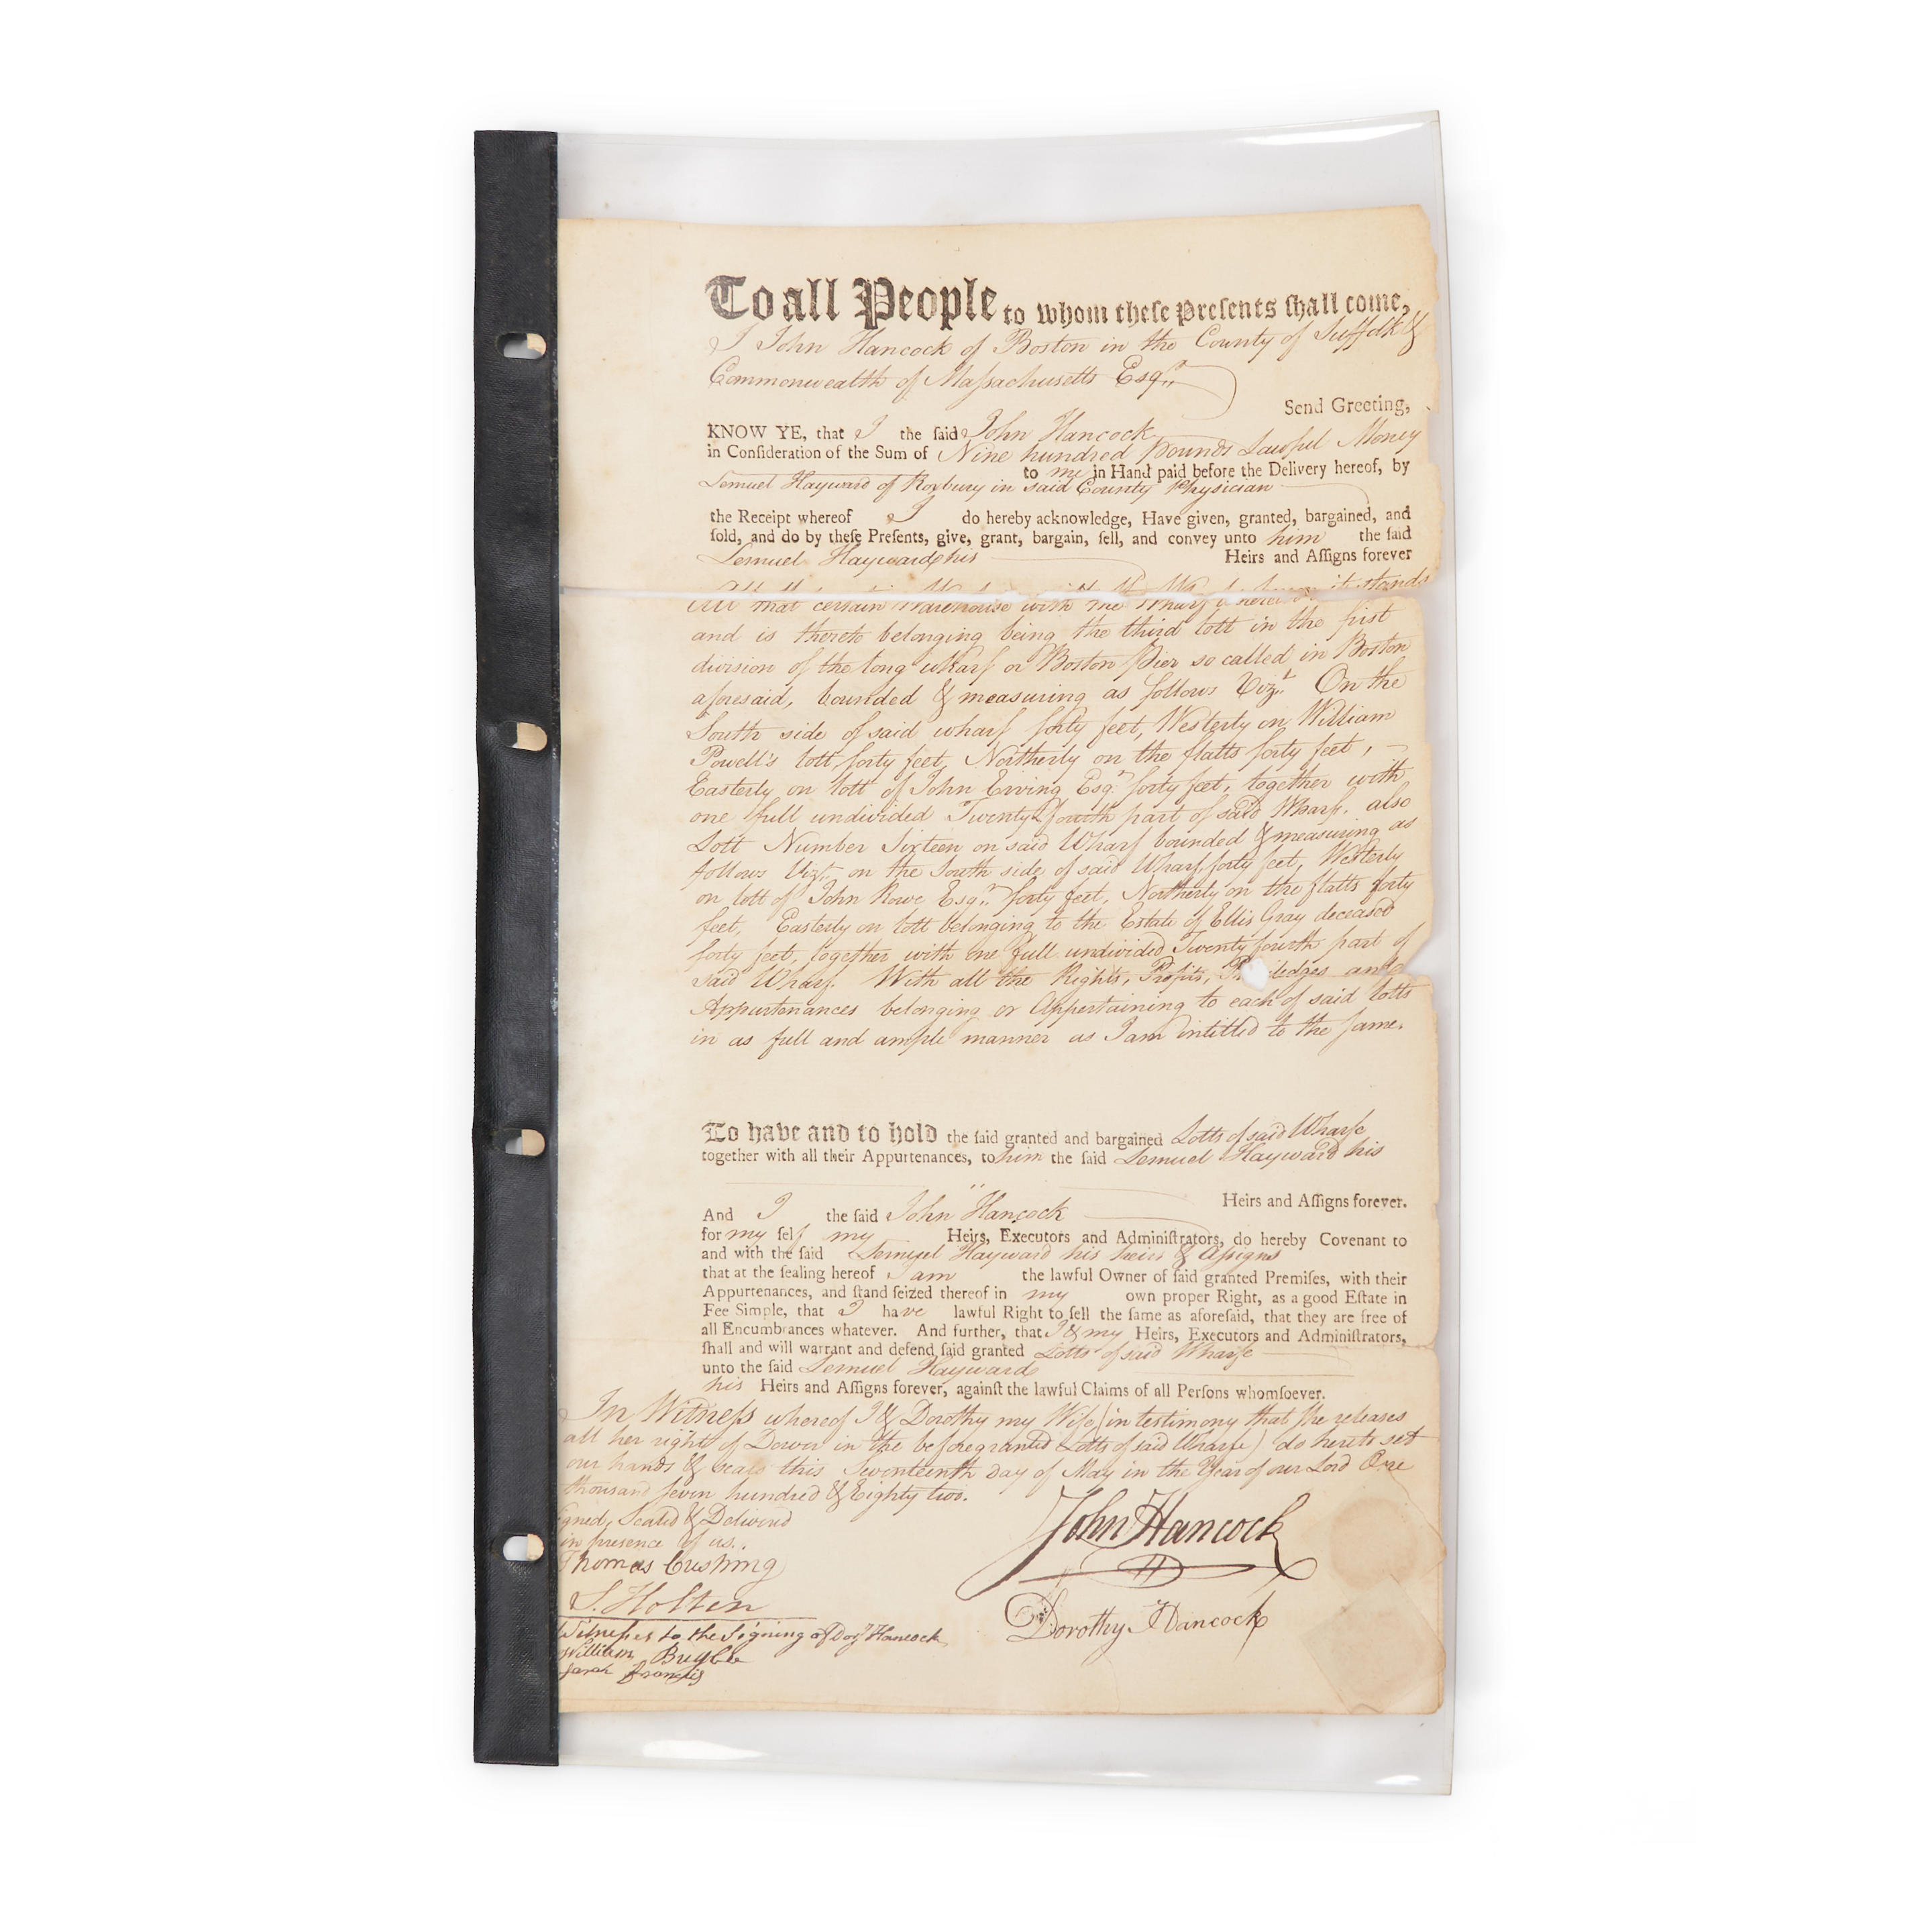 To all People to whom theſe Preſents ſhall come,
I John Hancock of Boston in the County of Suffolk &
Commonwealth of Maſsachusetts Esqr..
Send Greeting,
KNOW YE, that I the ſaid John Hancock
in Conſideration of the Sum of Nine hundred Pounds Lawful Money
to me in Hand paid before the Delivery hereof, by
Lemuel Hayward of Roxbury in said County Physician
the Receipt whereof I do hereby acknowledge, Have given, granted, bargained, and
ſold, and do by theſe Preſents, give, grant, bargain, ſell, and convey unto him the ſaid
Lemuel Hayward & his Heirs and Aſſigns forever
All that certain Warehouse with the Wharf whereon it stands
and is thereto belonging being the third lott in the first
division of the long wharf or Boston Pier so called in Boston
aforesaid, bounded & measuring as follows Vizt. On the
South side of said wharf forty feet, Westerly on William
Powell's lott forty feet, Northerly on the flatts forty feet,
Easterly on lott of John Erving Esqr. forty feet, together with
one full undivided Twenty fourth part of said Wharf. also
Lott Number Sixteen on said Wharf bounded & measuring as
follows Vizt. on the South side of said Wharf forty feet, Westerly
on lott of John Rowe Esqr.. forty feet, Northerly on the flatts forty
feet, Easterly on lott belonging to the Estate of Ellis Gray deceased
forty feet, together with one full undivided Twenty fourth part of
said Wharf. With all the Rights, Profits, Pr iledges and
Appurtenances belonging or Appertaining to each of said lotts
in as full and ample manner as I am intitled to the same.
To have and to hold the ſaid granted and bargained Lotts of said Wharfe
together with all their Appurtenances, to him the ſaid Lemuel Hayward his
Heirs and Aſſigns forever.
And I the ſaid John Hancock
for my ſelf my Heirs, Executors and Adminiſtrators, do hereby Covenant to
and with the ſaid Lemuel Hayward his heirs & Aſsigns
that at the ſealing hereof I am the lawful Owner of ſaid granted Premiſes, with their
Appurtenances, and ſtand ſeized thereof in my own proper Right, as a good Eſtate in
Fee Simple, that I have lawful Right to ſell the ſame as aforeſaid, that they are free of
all Encumbrances whatever. And further, that I & my Heirs, Executors and Adminiſtrators,
ſhall and will warrant and defend ſaid granted Lotts of said Wharfe
unto the ſaid Lemuel Hayward
his Heirs and Aſſigns forever, againſt the lawful Claims of all Perſons whomſoever.
In Witneſs whereof I & Dorothy my Wife (in testimony that she releases
all her right of Dower in the beforegranted Lotts of said Wharfe) do hereto set
our hands & seals this Seventeenth day of May in the Year of our Lord One
thousand seven hundred & Eighty two.
igned, Sealed & Delivered
in presence of us..
Thomas Cushing
S. Holten
Witneſses to the Signing of Doy Hancock
William Bugbe
Sarah Francis
John Hancock
Dorothy Hancock